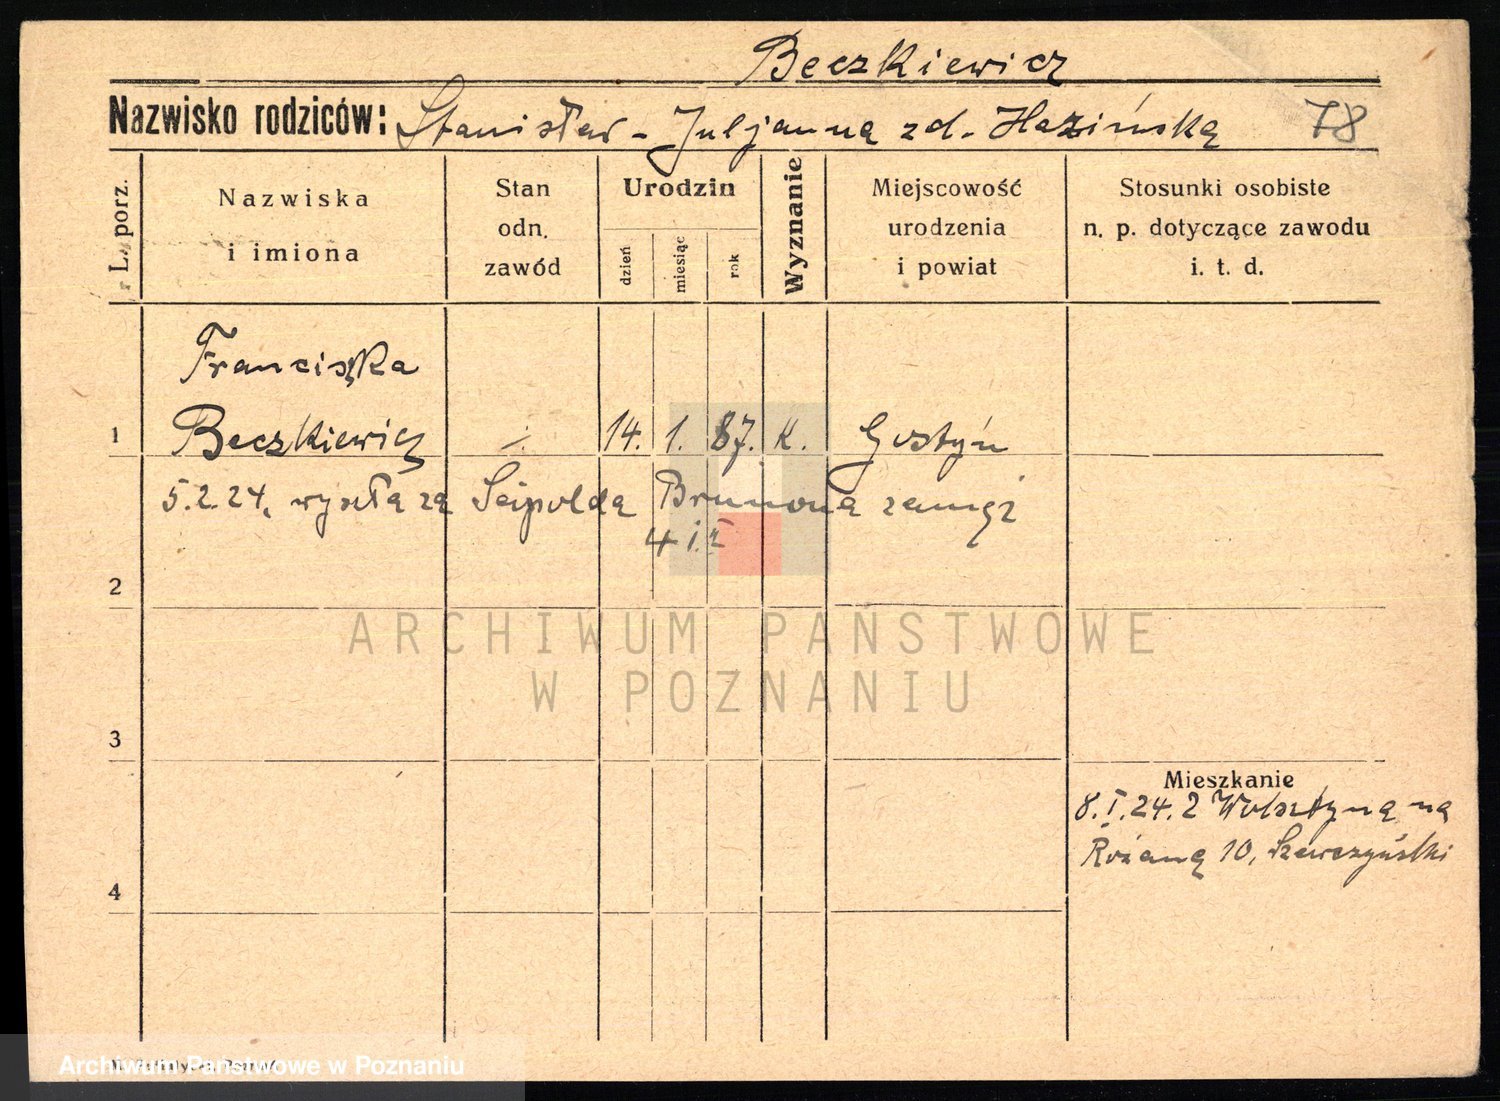 Beczkiewicz
Nazwisko rodziców: Stanisław - Juljanna zd. Hazińska 78
L. porz.
Nazwiska i imiona
Stan odn. zawód
Urodzin
dzień
miesiąc
rok
Wyznanie
Miejscowość urodzenia i powiat
Stosunki osobiste n. p. dotyczące zawodu i. t. d.
Franciszka
1 Beczkiewicz 14. 1. 87. K. Gostyń
5.2.24. wyszła za Seipolda Brunona zamąż
2
3
4
Mieszkanie
8.I.24. z Wolsztyna na
Różaną 10, Szewczyński
ARCHIWUM PAŃSTWOWE
W POZNANIU
Archiwum Państwowe w Poznaniu